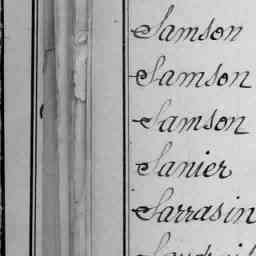 Samson
Samson
Samson
Sanier
Sarrasin